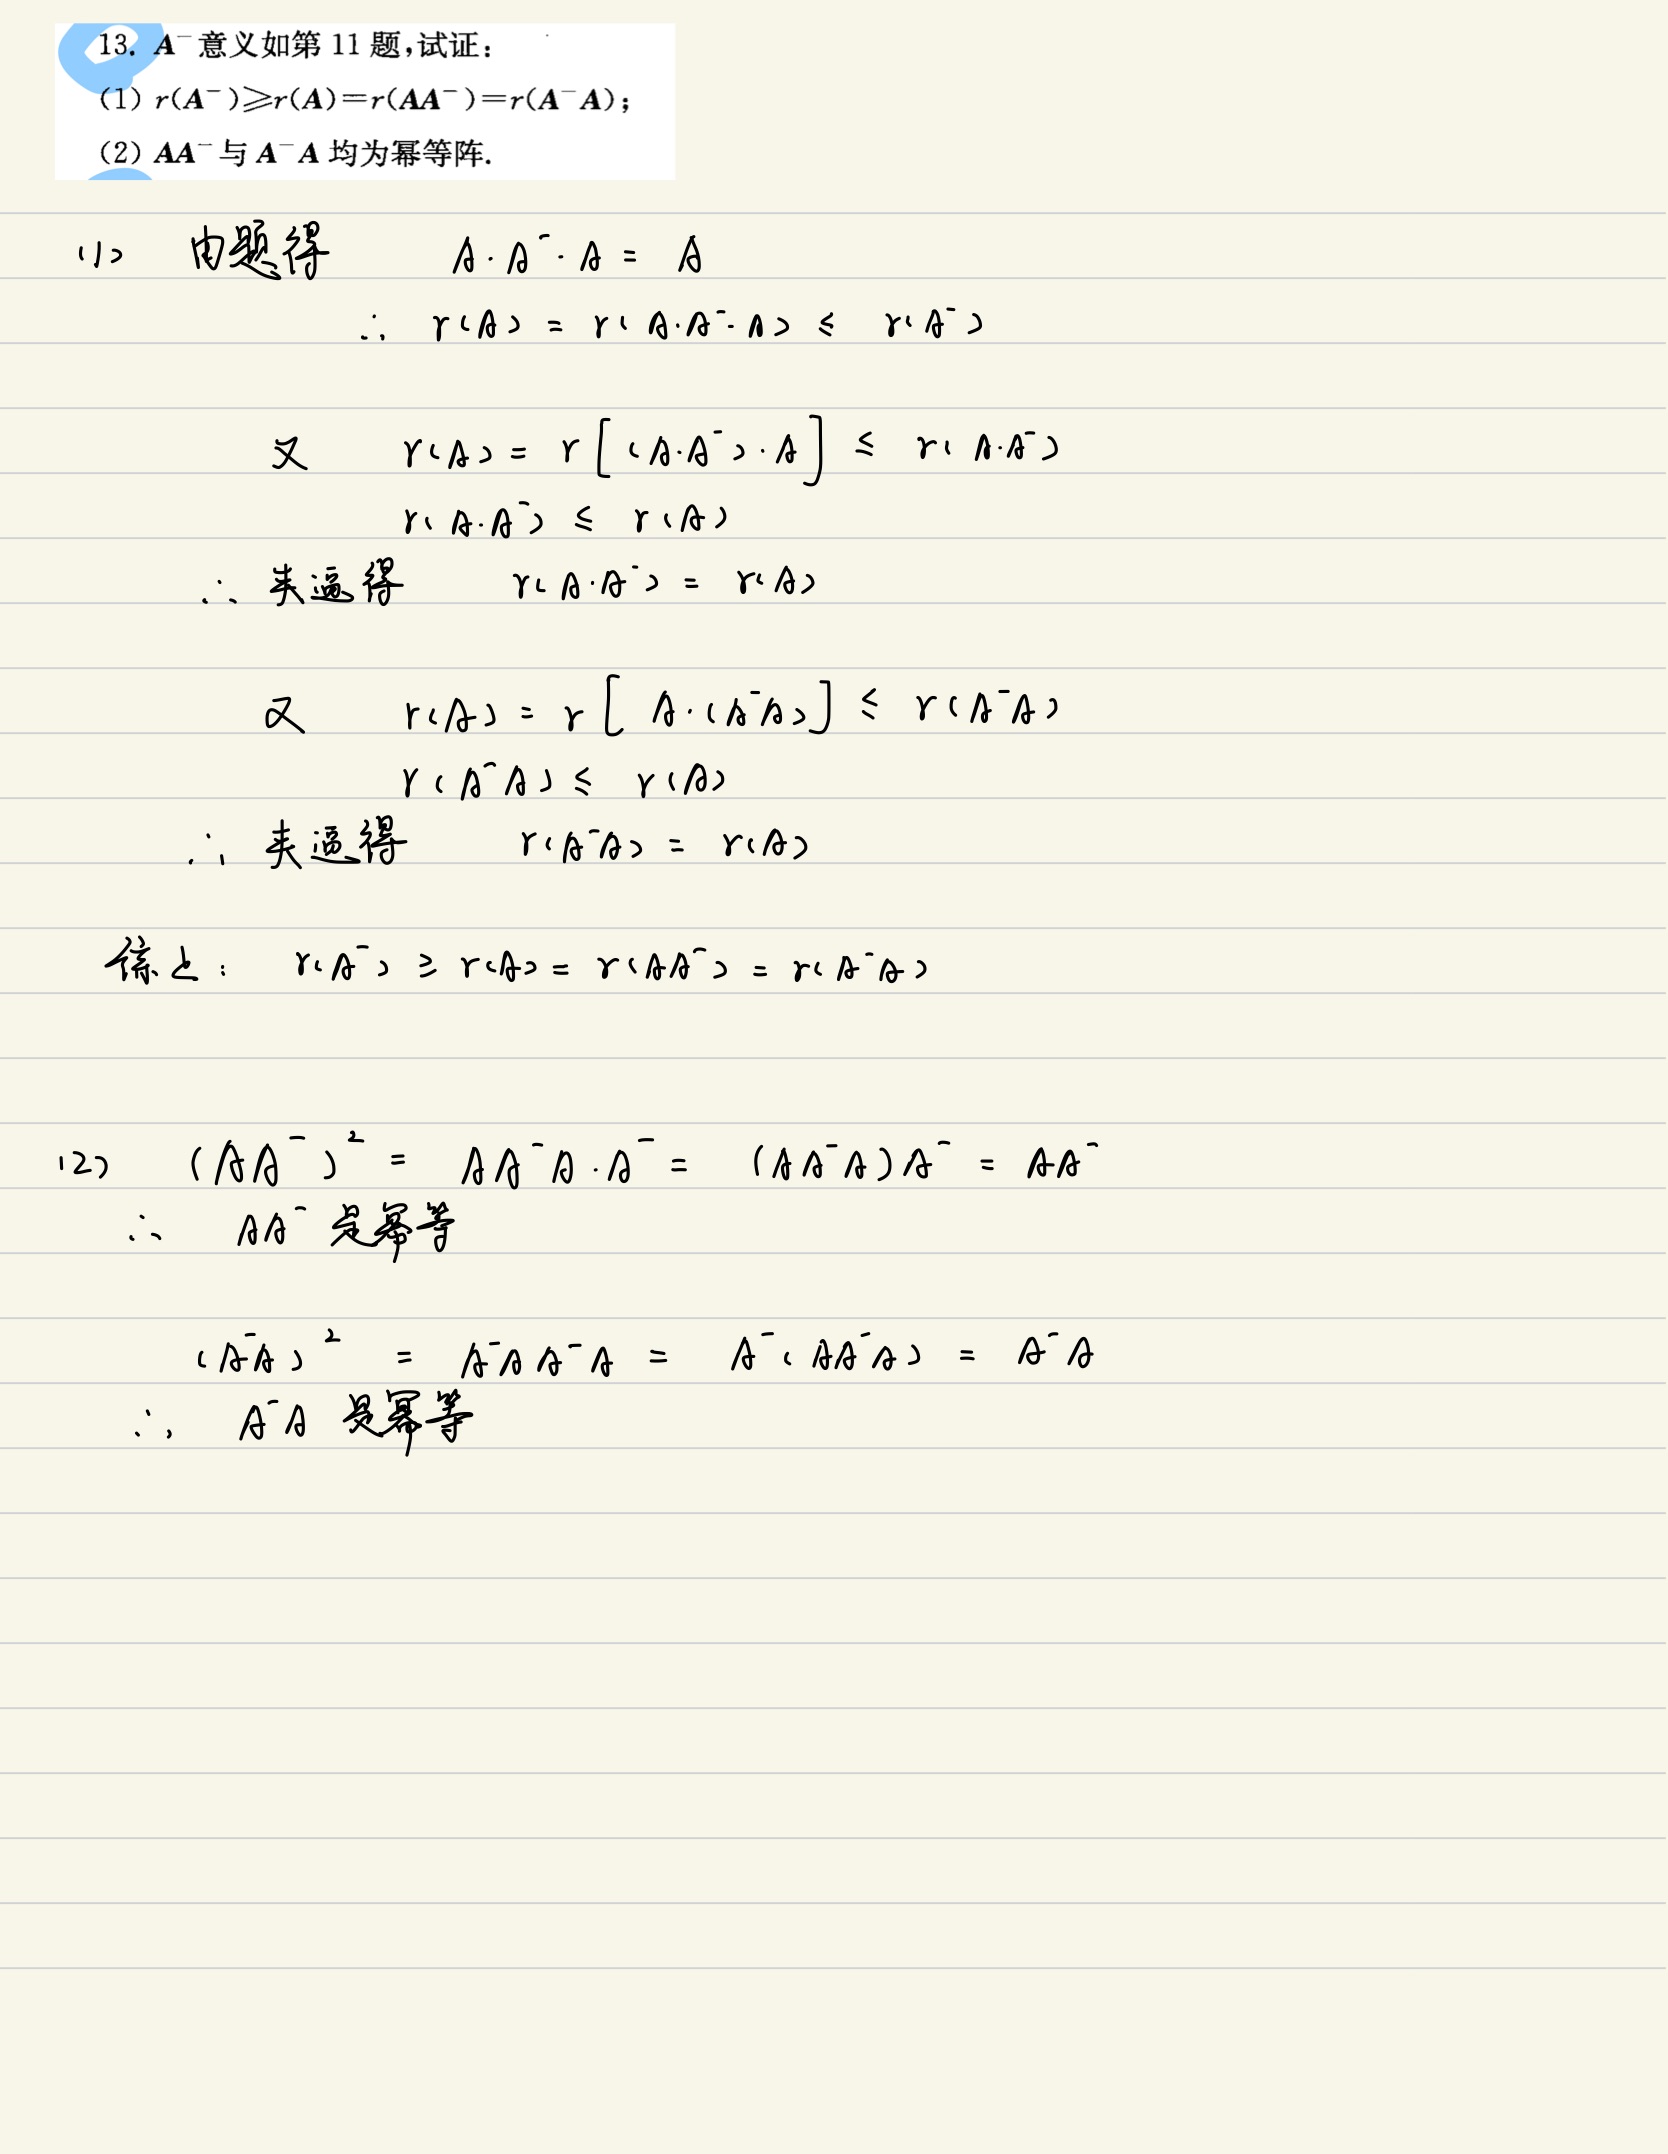 13. A⁻ 意义如第 11 题,试证:
(1) r(A⁻)⩾r(A)=r(AA⁻)=r(A⁻A);
(2) AA⁻ 与 A⁻A 均为幂等阵.
(1) 由题得 A·A⁻·A = A
∴ r(A) = r(A·A⁻·A) ≤ r(A⁻)
又 r(A) = r[(A·A⁻)·A] ≤ r(A·A⁻)
r(A·A⁻) ≤ r(A)
∴ 夹逼得 r(A·A⁻) = r(A)
又 r(A) = r[A·(A⁻A)] ≤ r(A⁻A)
r(A⁻A) ≤ r(A)
∴ 夹逼得 r(A⁻A) = r(A)
综上: r(A⁻) ≥ r(A) = r(AA⁻) = r(A⁻A)
(2) (AA⁻)² = AA⁻A·A⁻ = (AA⁻A)A⁻ = AA⁻
∴ AA⁻ 是幂等
(A⁻A)² = A⁻AA⁻A = A⁻(AA⁻A) = A⁻A
∴ A⁻A 是幂等